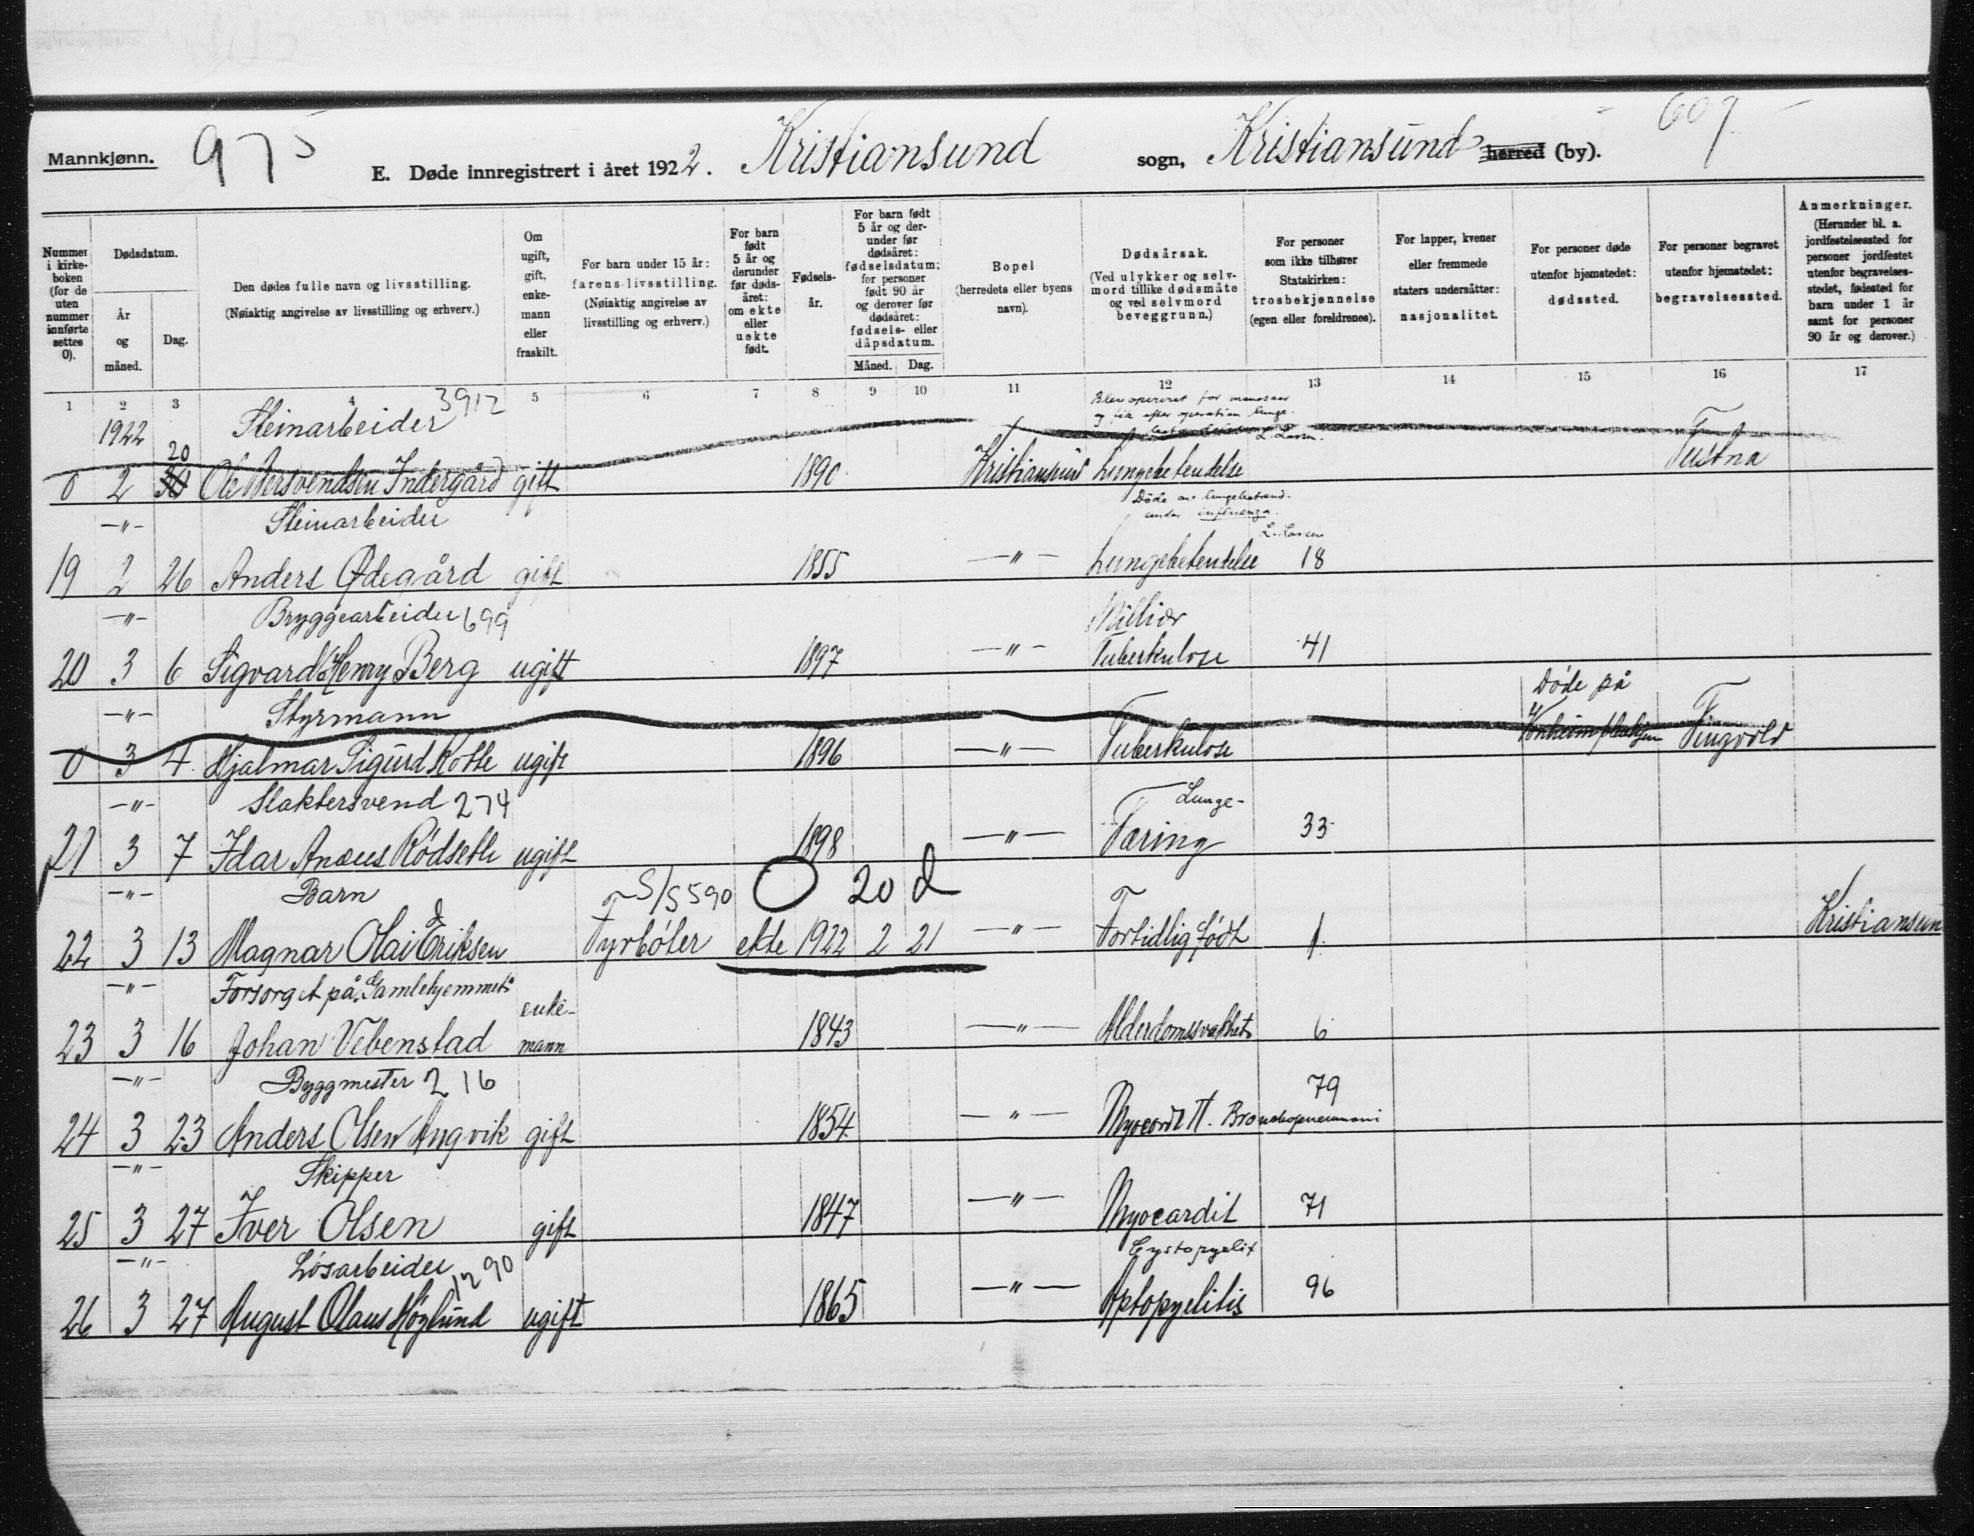 Mannkjønn. 975
E. Døde innregistrert i året 1922. Kristiansund sogn, Kristiansund herred (by). 609
Nummer i kirkeboken (for de uten nummer innførte settes 0).
Dødsdatum.
År og måned.
Dag.
Den dødes fulle navn og livsstilling.
(Nøiaktig angivelse av livsstilling og erhverv.)
Om ugift, gift, enkemann eller fraskilt.
For barn under 15 år:
farens livsstilling.
(Nøiaktig angivelse av livsstilling og erhverv.)
For barn født 5 år og derunder før dødsåret: om ekte eller uekte født.
Fødselsår.
For barn født 5 år og derunder før dødsåret: fødselsdatum; for personer født 90 år og derover før dødsåret: fødsels- eller dåpsdatum.
Måned. Dag.
Bopel
(herredets eller byens navn).
Dødsårsak.
(Ved ulykker og selvmord tillike dødsmåte og ved selvmord beveggrunn.)
For personer som ikke tilhører Statskirken:
trosbekjennelse
(egen eller foreldrenes).
For lapper, kvener eller fremmede staters undersåtter:
nasjonalitet.
For personer døde utenfor hjemstedet:
dødssted.
For personer begravet utenfor hjemstedet:
begravelsessted.
Anmerkninger.
(Herunder bl. a. jordfestelsessted for personer jordfestet utenfor begravelsesstedet, fødested for barn under 1 år samt for personer 90 år og derover.)
1 2 3 4 5 6 7 8 9 10 11 12 13 14 15 16 17
1922 Steinarbeider 3912 Blev operert for
og fik efter operation lunge-
L. Lossius.
0 2 20 Ole Indergård gift 1890 Kristiansund Lungebetendelse Tustna
-"- Steinarbeider Døde av
under influenza.
19 2 26 Anders Ødegård gift 1855 -"- Lungebetendelse 18
-"- Bryggearbeider 699 Milliær
20 3 6 Sigvard Henry Berg ugift 1897 -"- Tuberkulose 41
-"- Styrmann Døde på
0 3 4 Hjalmar Sigurd Kotte ugift 1896 -"- Tuberkulose Tingvold
-"- Slaktersvend 274 Lunge-
21 3 7 Idar Anæus Rødseth ugift 1898 -"- Tæring 33
-"- Barn S/S 590 O 20 d
22 3 13 Magnar Olai Eriksen Fyrbøter ekte 1922 2 21 -"- Fortidlig født 1 Kristiansun
-"- Forsorget på Gamlehjemmet enke-
23 3 16 Johan Vebenstad mann 1843 -"- Alderdomssvakhet 6
-"- Byggmester 216 79
24 3 23 Anders Olsen Angvik gift 1854 -"- Myocardit. Bronchopneumoni
-"- Skipper
25 3 27 Iver Olsen gift 1847 -"- Myocardit 71
-"- Løsarbeider 1290 Cystopyelit
26 3 27 August Olaus Höglund ugift 1865 -"- 96